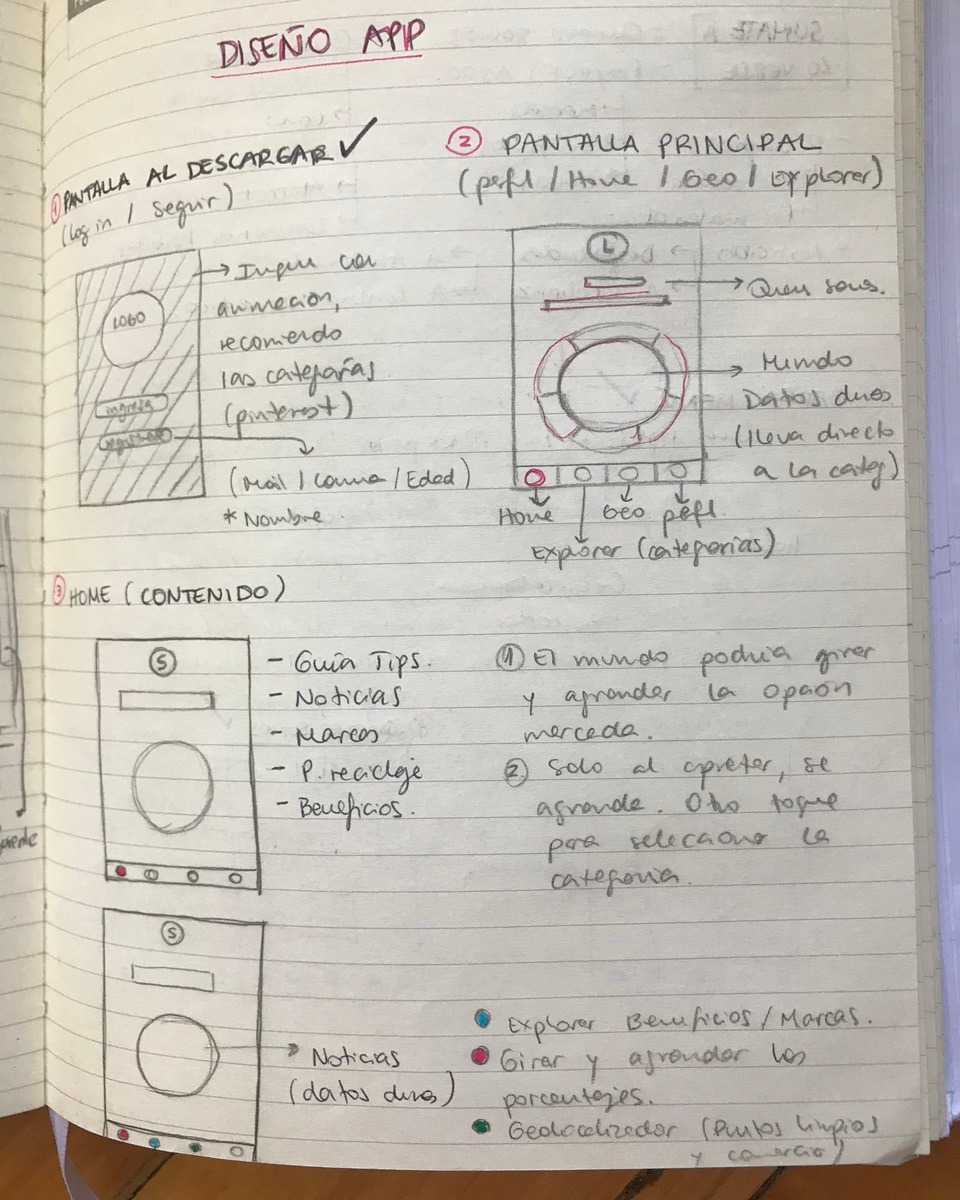 DISEÑO APP
① PANTALLA AL DESCARGAR ✓
(log in / seguir)
LOGO
ingresa
con
animación,
recomiendo
las categorías
(pinterest)
(Mail / Comuna / Edad)
* Nombre
② PANTALLA PRINCIPAL
(perfil / Home / Geo / Explorer)
L
Quien somos.
Mundo
Datos duros
(lleva directo
a la categ)
1
Home
Geo
perfil
Explorer (categorias)
③ HOME (CONTENIDO)
S
- Guía Tips.
- Noticias
- Marcas
- P. reciclaje
- Beneficios.
① El mundo podria girar
y agrandar la opción
marcada.
② Solo al apretar, se
agranda. Otro toque
para seleccionar la
categoria.
S
Noticias
(datos duros)
Explorer Beneficios / Marcas.
Girar y agrandar los
porcentajes.
Geolocalizador (Puntos limpios
y comercio)